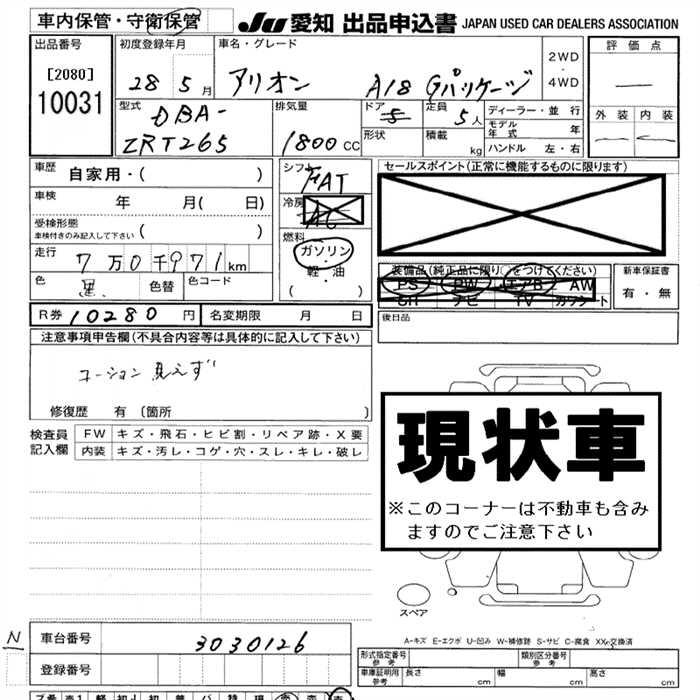 車内保管・守衛保管
JU 愛知 出品申込書 JAPAN USED CAR DEALERS ASSOCIATION
出品番号
[2080]
10031
初度登録年月
28 5月
車名・グレード
アリオン A18 Gパッケージ
2WD
・
4WD
評価点
外装 内装
型式
DBA-
ZRT265
排気量
1800 CC
ドア
5
形状
定員
5人
積載
kg
ディーラー・並行
モデル年式 年
ハンドル 左・右
車歴 自家用・( )
車検 年 月( 日)
受検形態
車検付きのみ記入して下さい ( )
走行 7万0千971km
色 黒 色替 色コード
シフト
FAT
冷房
AC
燃料
ガソリン
・
軽・油
( )
セールスポイント(正常に機能するものに限ります)
装備品(純正品に限り○をつけてください)
PS PW エアB AW
SR ナビ TV カワシート
新車保証書
有・無
後日品
R券 10280円 名変期限 月 日
注意事項申告欄(不具合内容等は具体的に記入して下さい)
コーション見えず
修復歴 有 [箇所 ]
検査員記入欄
FW キズ・飛石・ヒビ割・リペア跡・X要
内装 キズ・汚レ・コゲ・穴・スレ・キレ・破レ
現状車
※このコーナーは不動車も含み
ますのでご注意下さい
スペア
A-キズ E-エクボ U-凹み W-補修跡 S-サビ C-腐食 XX-交換済
N
車台番号 3030126
登録番号
形式指定番号 参考
類別区分番号 参考
車庫証明用 参考 長さ cm 幅 cm 高さ cm